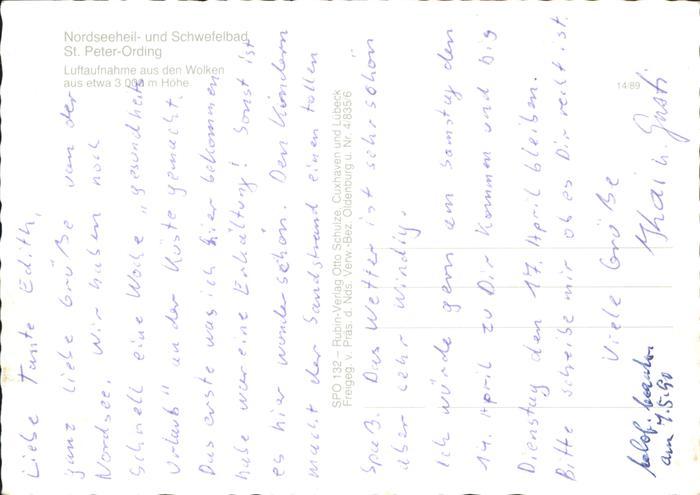 Nordseeheil- und Schwefelbad
St. Peter-Ording
Luftaufnahme aus den Wolken
aus etwa 3 000 m Höhe
14/89
SPO 132 – Rubin-Verlag Otto Schulze, Cuxhaven und Lübeck
Freigeg. v. Präs. d. Nds. Verw.-Bez. Oldenburg u. Nr. 4/835/6
Liebe Tante Edith,
ganz liebe Grüße von der
Nordsee. Wir haben noch
schnell eine Woche „gesundheits
urlaub" an der Küste gemacht.
Das erste was ich hier bekommen
habe war eine Erkältung! Sonst ist
es hier wunderschön. Den Kindern
macht der Sandstrand einen tollen
Spaß. Das Wetter ist sehr schön
aber sehr windig.
Ich würde gern am Samstag den
14. April zu Dir kommen und bis
Dienstag den 17. April bleiben.
Bitte schreibe mir ob es Dir recht ist.
Viele Grüße
am 4.5.90